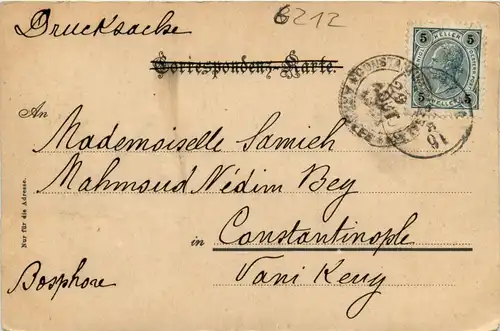 6212
Drucksache
Correspondenz-Karte.
5 HELLER 5
5 HELLER 5
An
Mademoiselle Samieh
Mahmoud Nédim Bey
in Constantinople
Vani Keuy
Bosphore
Nur für die Adresse.